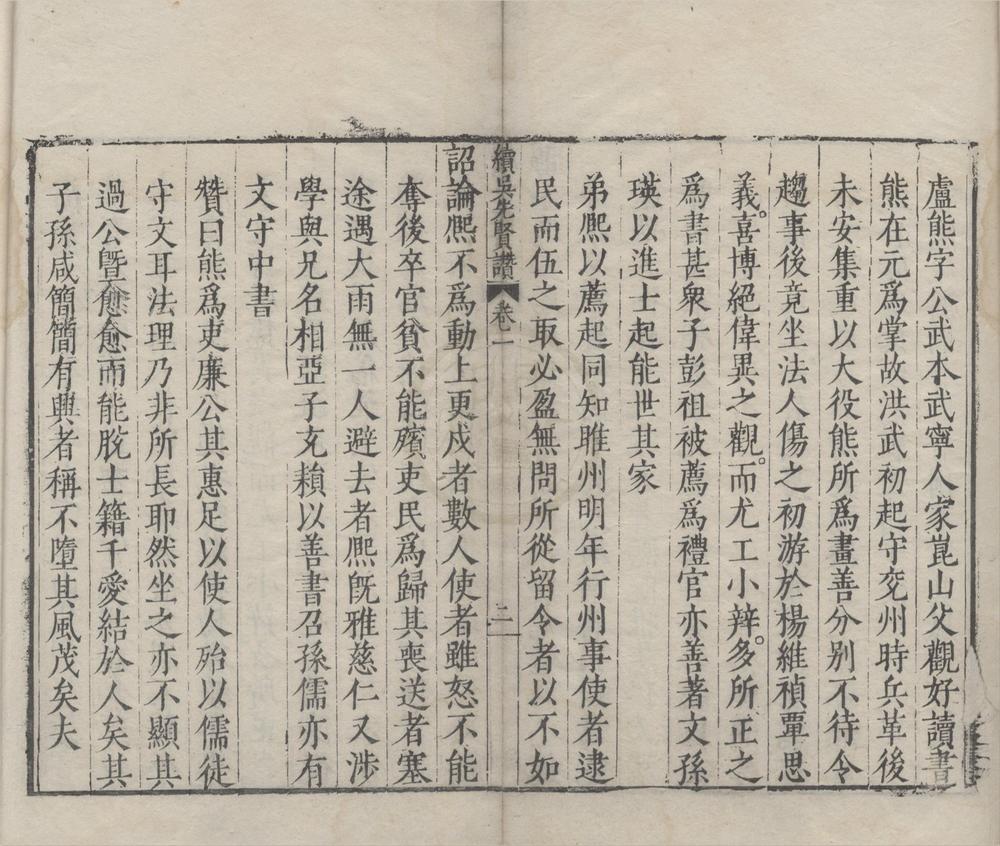 盧熊字公武本武寧人家崑山父觀好讀書
熊在元爲掌故洪武初起守兖州時兵革後
未安集重以大役熊所爲畫善分别不待令
趨事後竟坐法人傷之初游於楊維禎覃思
義喜博絕偉異之觀而尤工小辤多所正之
爲書甚衆子彭祖被薦爲禮官亦善著文孫
瑛以進士起能世其家
弟熈以薦起同知睢州明年行州事使者逮
民而伍之取必盈無問所從留令者以不如
續吳先賢讚 卷一 二
詔論熈不爲動上更戍者數人使者雖怒不能
奪後卒官貧不能殯吏民爲歸其喪送者塞
途遇大雨無一人避去者熈旣雅慈仁又涉
學與兄名相亞子充頛以善書召孫儒亦有
文守中書
贊曰熊爲吏廉公其惠足以使人殆以儒徒
守文耳法理乃非所長耶然坐之亦不顯其
過公曁愈愈而能脫士籍千愛結於人矣其
子孫咸簡簡有輿者稱不墮其風茂矣夫